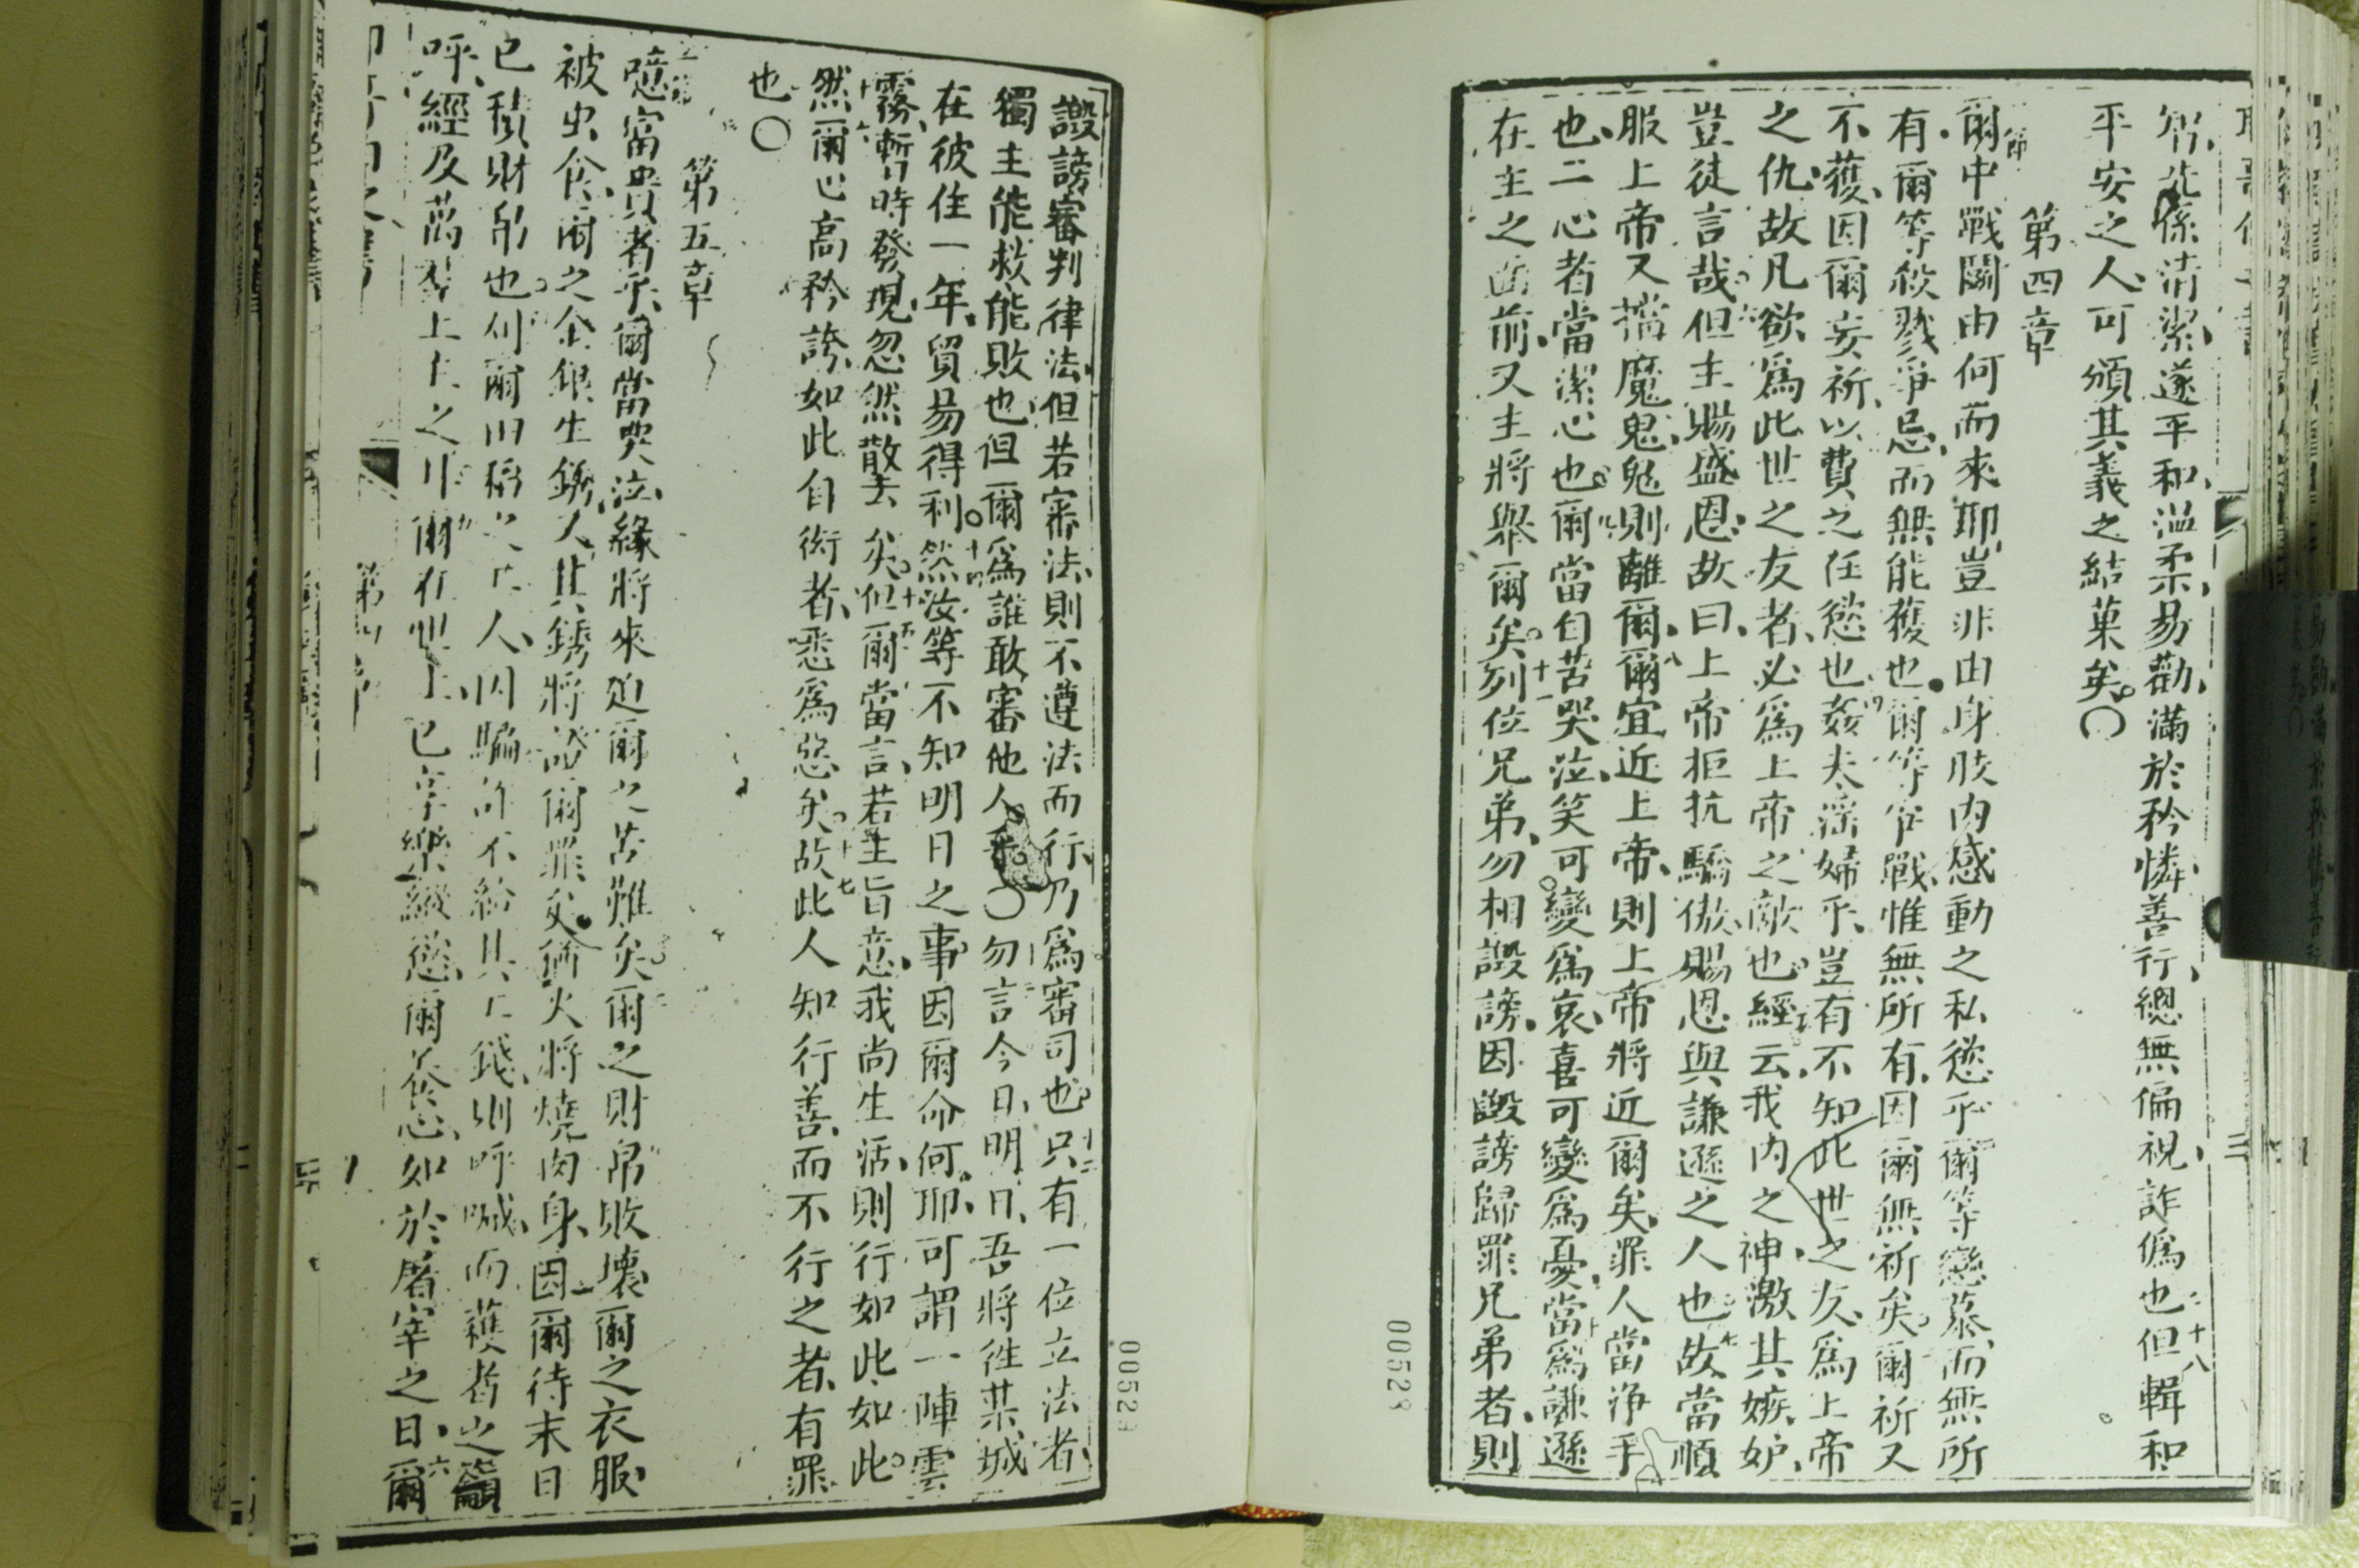 智先係清潔、遂平和、溫柔、易勸、滿於矜憐、善行、總無偏視詐偽也十八但輯和
平安之人、可頒其義之結菓矣。〇
第四章
節爾中戰鬬由何而來耶、豈非由身肢內感動之私慾乎二爾等戀慕、而無所
有、爾等殺戮爭忌、而無能獲也、爾等爭戰、惟無所有、因爾無祈矣三爾祈又
不獲、因爾妄祈、以費之任慾也四姦夫淫婦乎、豈有不知此世之友、為上帝
之仇、故凡欲為此世之友者、必為上帝之敵也五經云、我內之神、激其嫉妒、
豈徒言哉六但主賜盛恩、故曰、上帝拒抗驕傲、賜恩與謙遜之人也七故當順
服上帝、又擋魔鬼、鬼則離爾、八爾宜近上帝、則上帝將近爾矣、罪人當淨手
也、二心者當潔心也九爾當自苦哭泣、笑可變為哀、喜可變為憂、十當為謙遜
在主之面前、又主將舉爾矣十一列位兄弟、勿相譭謗、因譭謗歸罪兄弟者、則
00528
譭謗審判律法、但若審法、則不遵法而行、乃為審司也十二只有一位立法者、
獨主能救能敗也、但爾為誰敢審他人〇勿言今日、明日、吾將徃某城
在彼住一年、貿易得利十四然汝等不知明日之事、因爾命何耶、可謂一陣雲
霧、暫時發現、忽然散去矣十五但爾當言、若主旨意、我尚生活、則行如此如此
十六然爾心高矜誇、如此自衒者、悉為惡矣十七故此人知行善、而不行之者、有罪
也〇
第五章
噫富貴者乎、爾當哭泣、緣將來廹爾之苦難矣二爾之財帛敗壞、爾之衣服
被虫食、爾之金銀生銹、又其銹將證爾罪矣、猶火將燒肉身、因爾待末日
已積財帛也
呼、經及萬 上主之耳五爾在世上、已享樂縱慾、爾養心、如於屠宰之日、六爾
00529